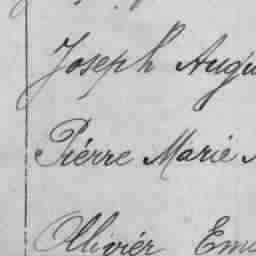 Joseph Augu
Piérre Marie
Olliviér Em